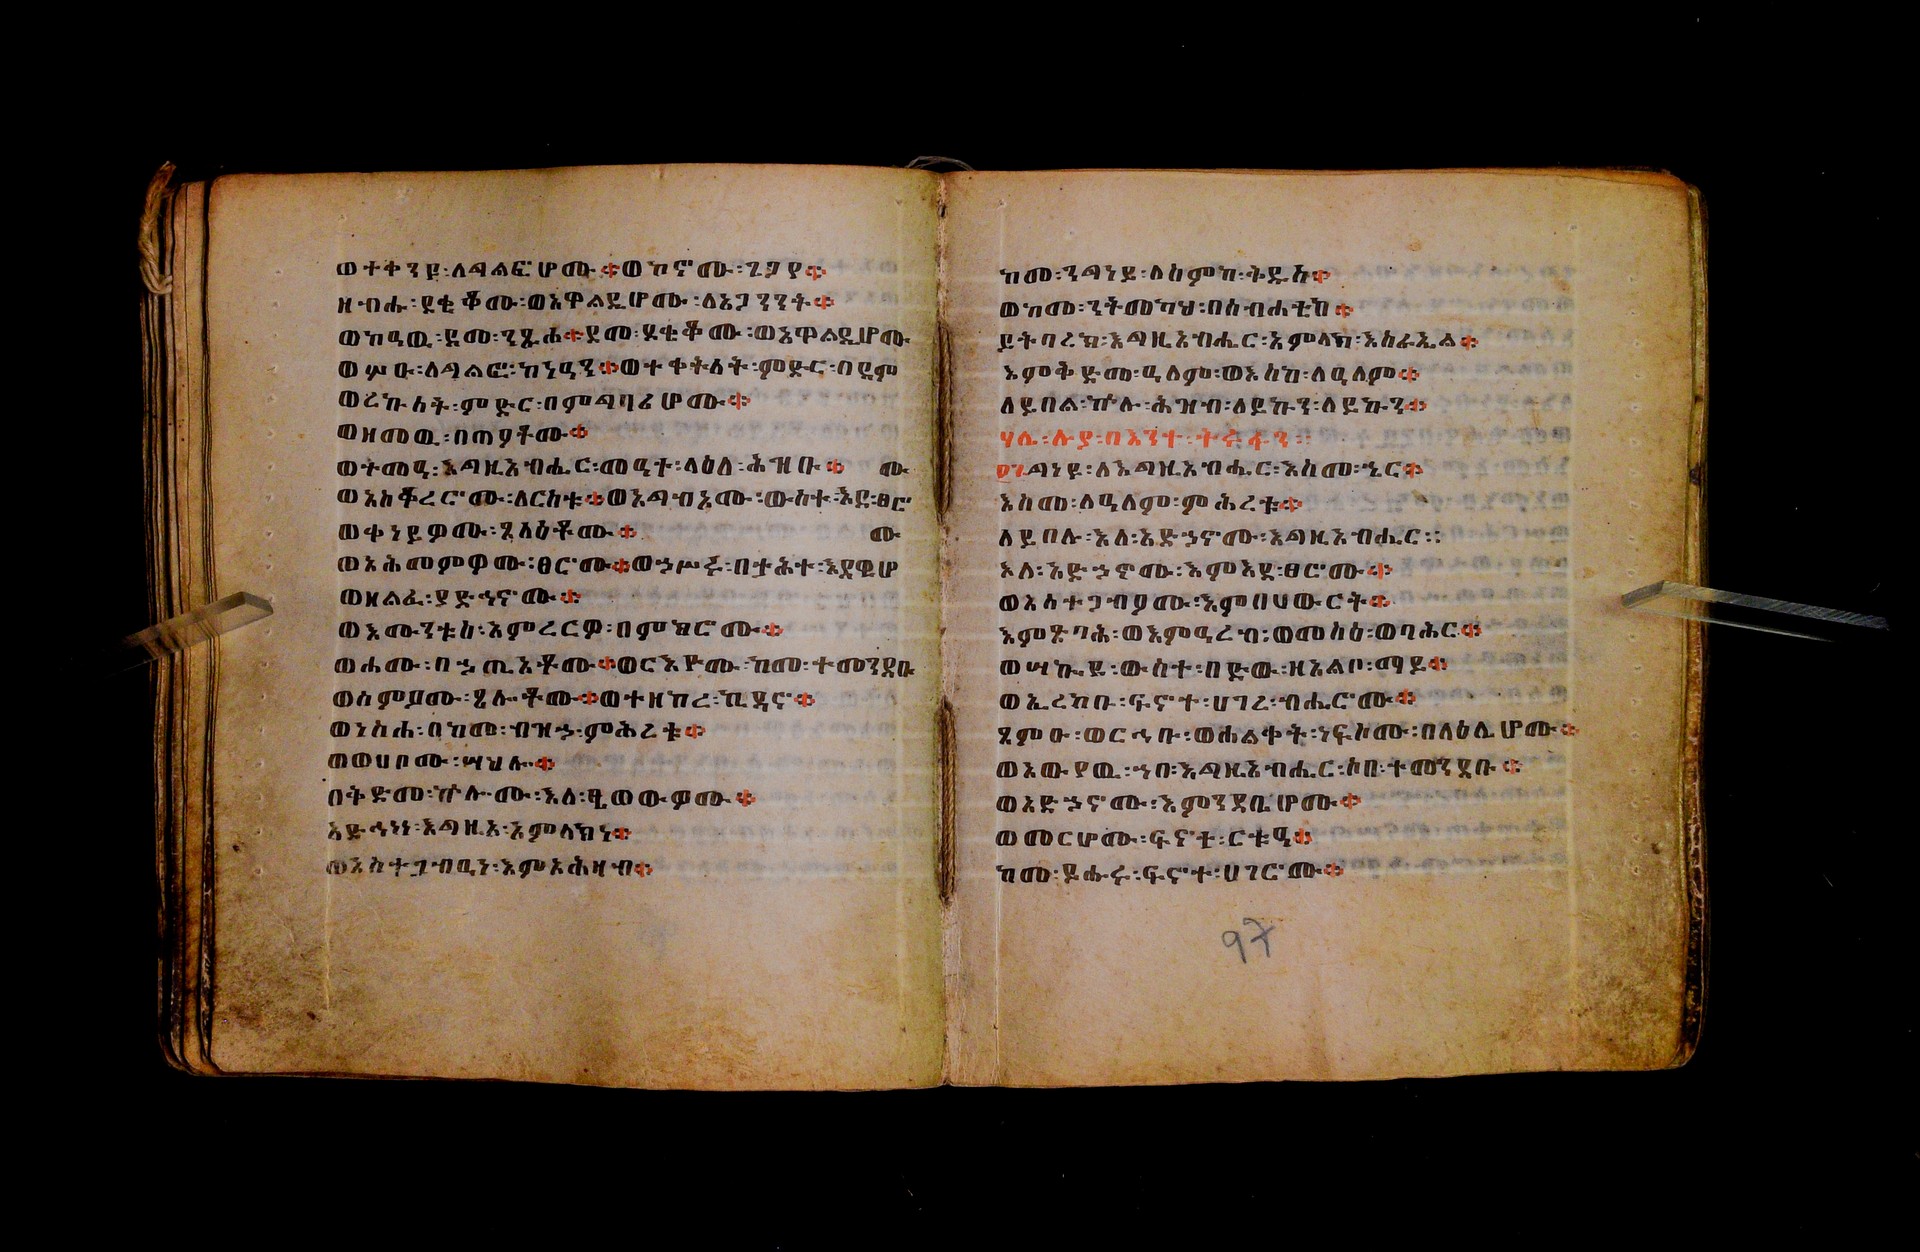 ወተቀንዩ፡ለግልፎሆሙ፨ወኮኖሙ፡ጌጋየ፨
ዘብሑ፡ደቂቆሙ፡ወአዋልዲሆሙ፡ለአጋንንት፨
ወከዓዉ፡ደመ፡ንጹሐ፨ደመ፡ደቂቆሙ፡ወአዋልዲሆሙ
ወሦዑ፡ለግልፎ፡ከነዓን፨ወተቀትለት፡ምድር፡በደም
ወረኵሰት፡ምድር፡በምግባሪሆሙ፨
ወዘመዉ፡በጣዖቶሙ፨
ወተመዓ፡እግዚአብሔር፡መዓተ፡ላዕለ፡ሕዝቡ፨ ሙ
ወአስቆረርሙ፡ለርስቱ፨ወአግብኦሙ፡ውስተ፡እደ፡ፀሮ
ወቀነይዎሙ፡ጸላዕቶሙ፨ ሙ
ወአሕመምዎሙ፡ፀሮሙ፨ወኃሥሩ፡በታሕተ፡እደዊሆ
ወዘልፈ፡ያድኅኖሙ፨
ወእሙንቱሰ፡አምረርዎ፡በምክሮሙ፨
ወሐሙ፡በኃጢአቶሙ፨ወርእዮሙ፡ከመ፡ተመንደቡ
ወሰምዖሙ፡ጸሎቶሙ፨ወተዘከረ፡ኪዳኖ፨
ወነስሐ፡በከመ፡ብዝኃ፡ምሕረቱ፨
ወወሀቦሙ፡ሣህሉ፨
በቅድመ፡ኵሎሙ፡እለ፡ፄወውዎሙ፨
አድኅነነ፡እግዚኦ፡አምላክነ፨
ወአስተጋብዓነ፡እምአሕዛብ፨
ከመ፡ንግነይ፡ለስምከ፡ቅዱስ፨
ወከመ፡ንትመካህ፡በስብሐቲከ፨
ይትባረክ፡እግዚአብሔር፡አምላክ፡እስራኤል፨
እምቅድመ፡ዓለም፡ወእስከ፡ለዓለም፨
ለይበል፡ኵሉ፡ሕዝብ፡ለይኩን፡ለይኩን፨
ሃሌ፡ሉያ፡በእንተ፡ትሩፋን፡፡
፻፮ግነዩ፡ለእግዚአብሔር፡እስመ፡ኄር፨
እስመ፡ለዓለም፡ምሕረቱ፨
ለይበሉ፡እለ፡አድኃኖሙ፡እግዚአብሔር፡፡
እለ፡አድኃኖሙ፡እምእደ፡ፀሮሙ፨
ወአስተጋብዖሙ፡እምበሀውርት፨
እምጽባሕ፡ወእምዓረብ፡ወመስዕ፡ወባሕር፨
ወሣኬይ፡ውስተ፡በድው፡ዘአልቦ፡ማይ፨
ወኢረከቡ፡ፍኖተ፡ሀገረ፡ብሔሮሙ፨
ጸምዑ፡ወርኅቡ፡ወሐልቀት፡ነፍሶሙ፡በላዕሌሆሙ፨
ወአውየዉ፡ኀበ፡እግዚአብሔር፡ሶበ፡ተመንደቡ፨
ወአድኃኖሙ፡እምንዳቤሆሙ፨
ወመርሆሙ፡ፍኖተ፡ርቱዓ፨
ከመ፡ይሑሩ፡ፍኖተ፡ሀገሮሙ፨
97